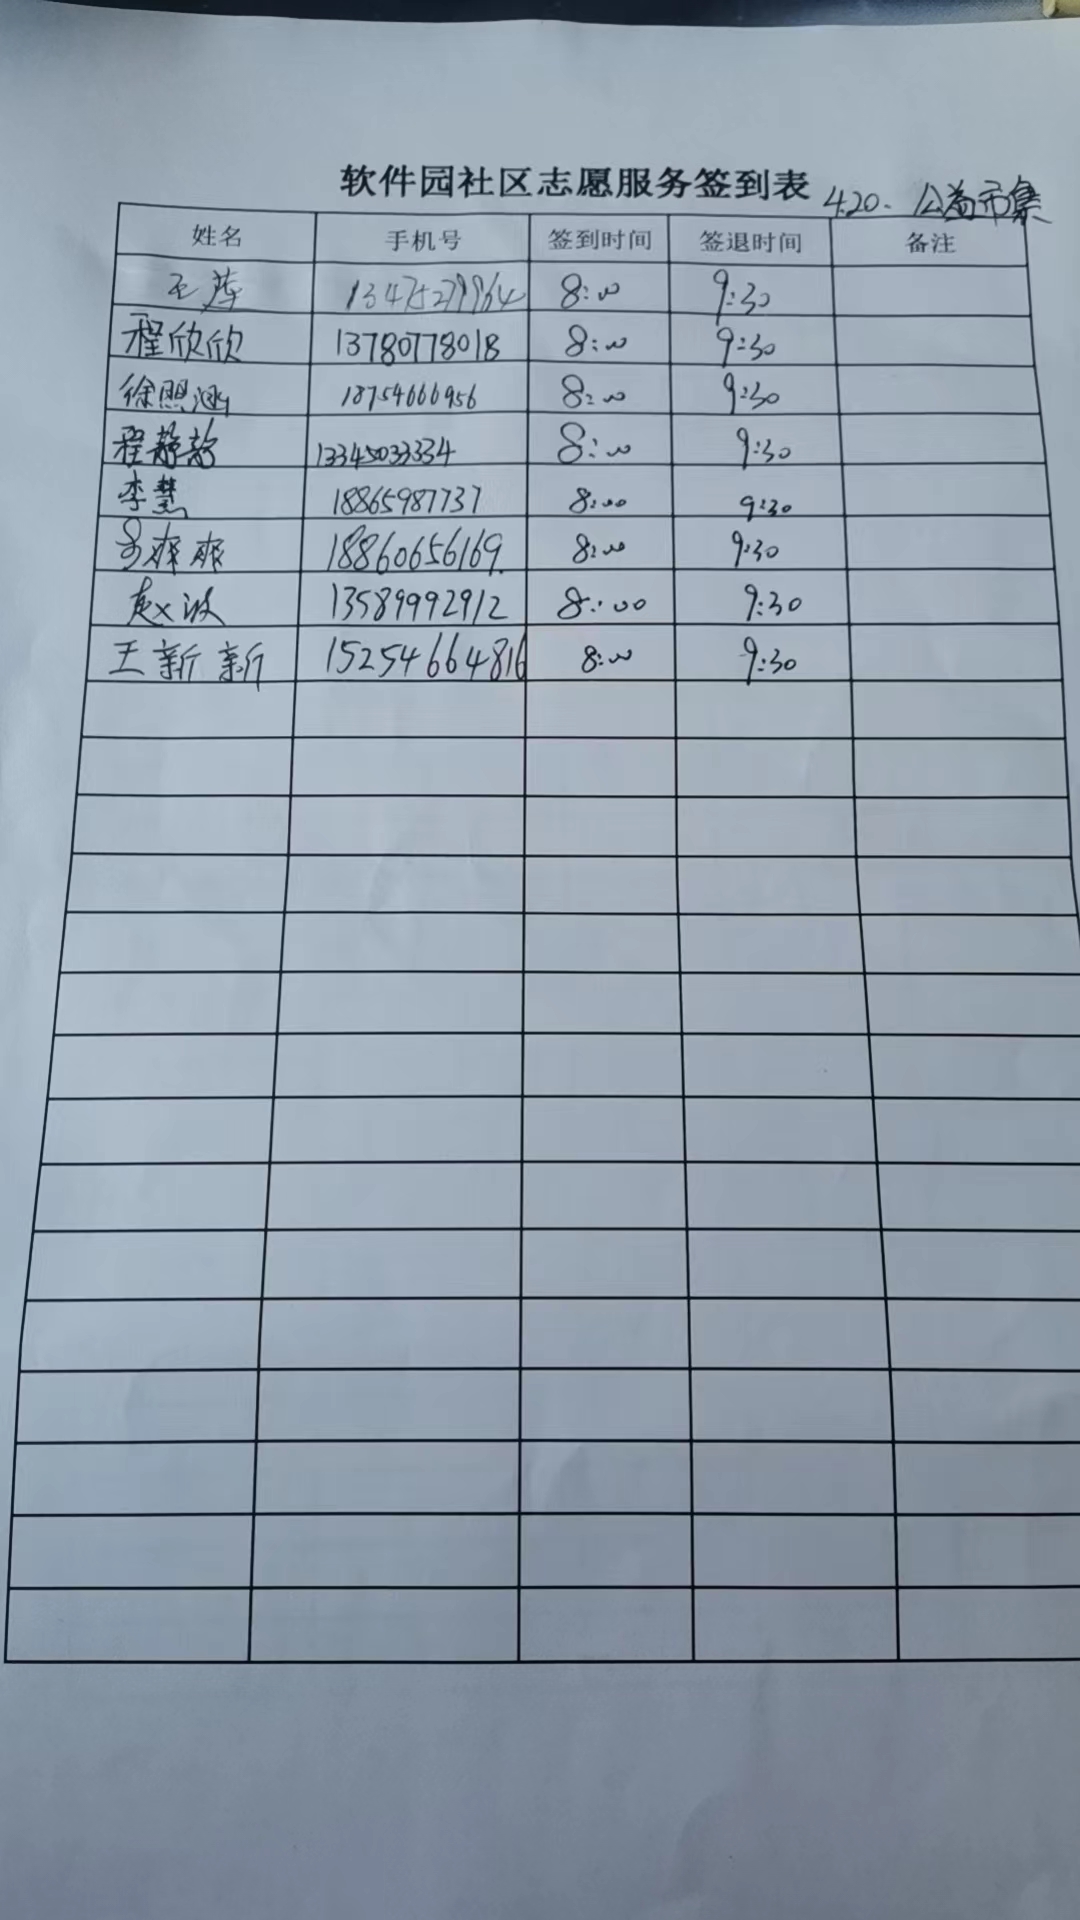 软件园社区志愿服务签到表 4.20. 公益市集
姓名 手机号 签到时间 签退时间 备注
王莲 13475279964 8:00 9:30
程欣欣 13780778018 8:00 9:30
徐照涵 18754666956 8:00 9:30
程静韵 13345033334 8:00 9:30
李慧 18865987737 8:00 9:30
爽爽 18860656169. 8:00 9:30
赵波 13589992912 8:00 9:30
王新新 15254664816 8:00 9:30